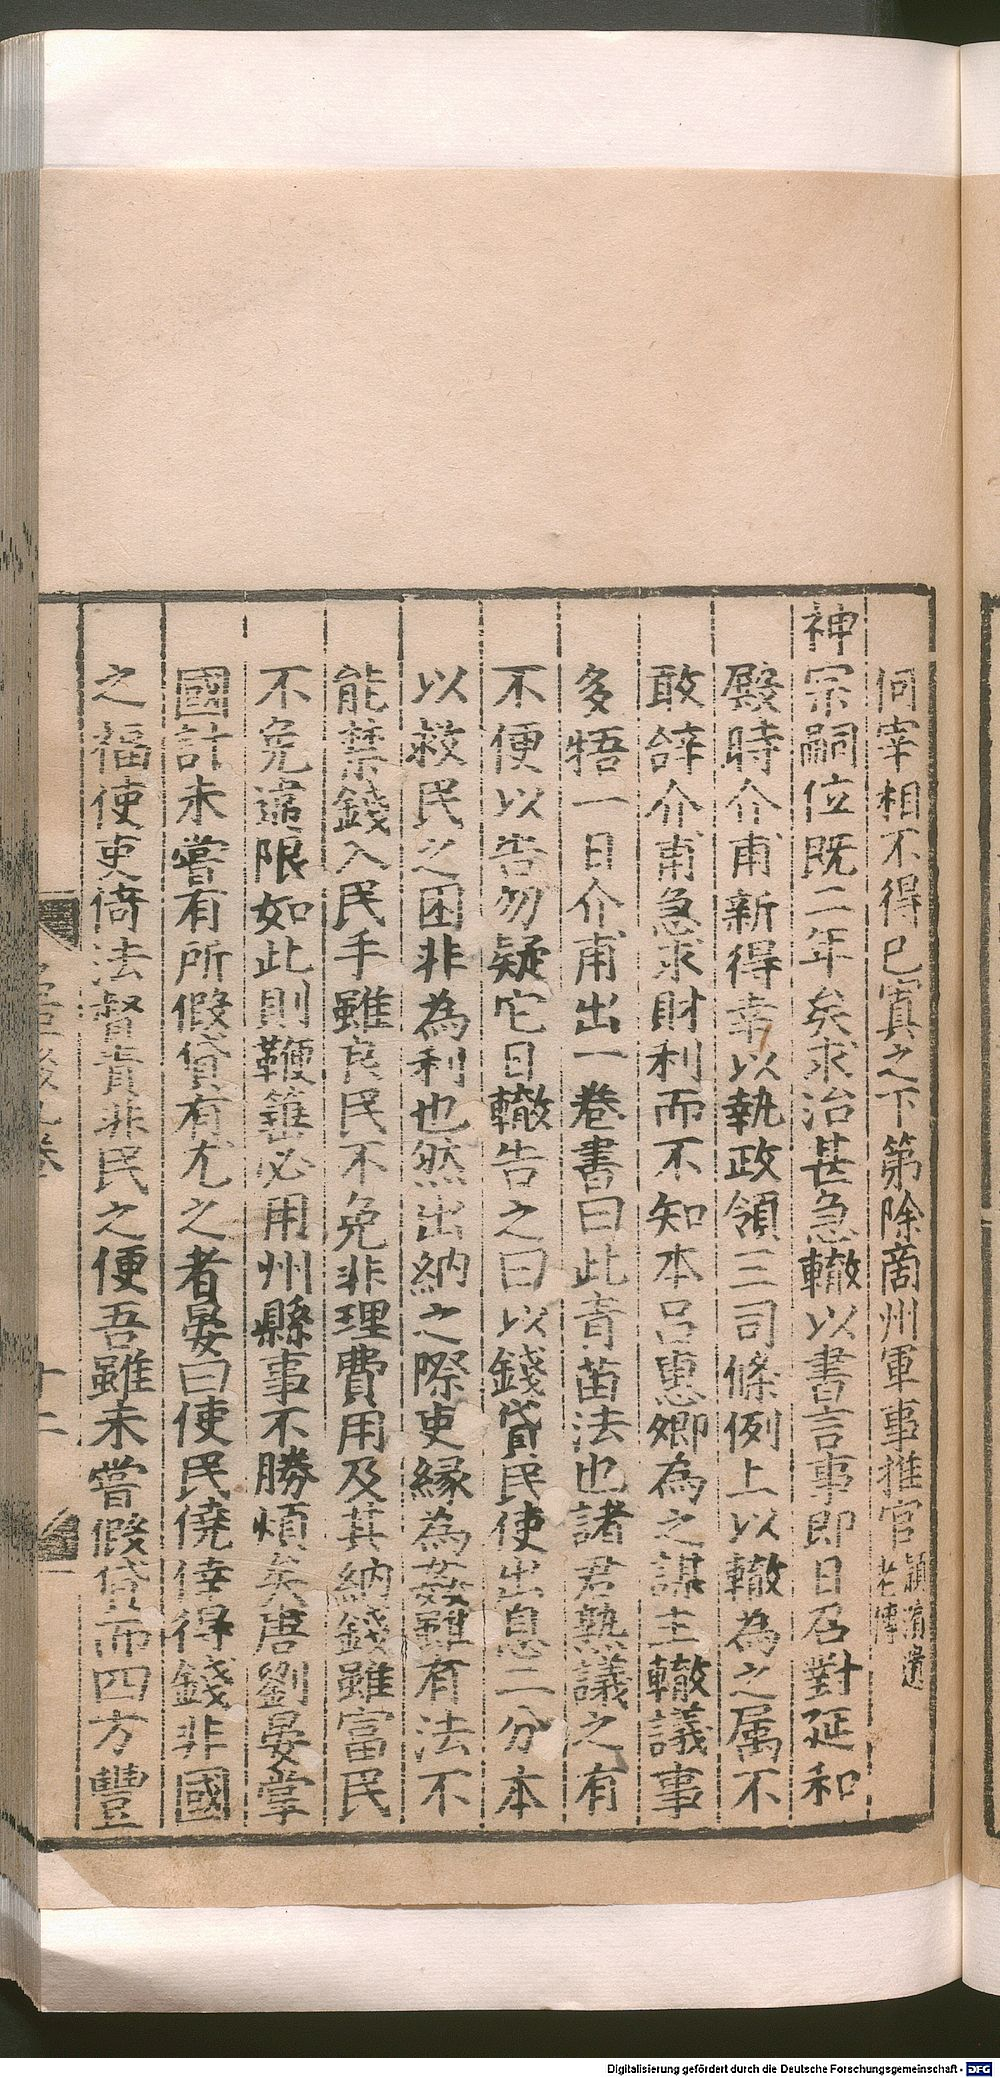 何宰相不得已寘之下第除商州軍事推官潁濱遺老傳
神宗嗣位既二年矣求治甚急轍以書言事即日召對延和
殿時介甫新得幸以執政領三司條例上以轍為之属不
敢辝介甫急求財利而不知本呂惠卿為之謀主轍議事
多牾一日介甫出一卷書曰此青苗法也諸君熟議之有
不便以告勿疑它日轍告之曰以錢貸民使出息二分本
以救民之困非為利也然出納之際吏緣為姦雖有法不
能禁錢入民手雖良民不免非理費用及其納錢雖富民
不免違限如此則鞭箠必用州縣事不勝煩矣唐劉晏掌
國計未嘗有所假貸有尤之者晏曰使民僥倖得錢非國
之福使吏倚法督責非民之便吾雖未嘗假貸而四方豐
十二
Digitalisierung gefördert durch die Deutsche Forschungsgemeinschaft - DFG